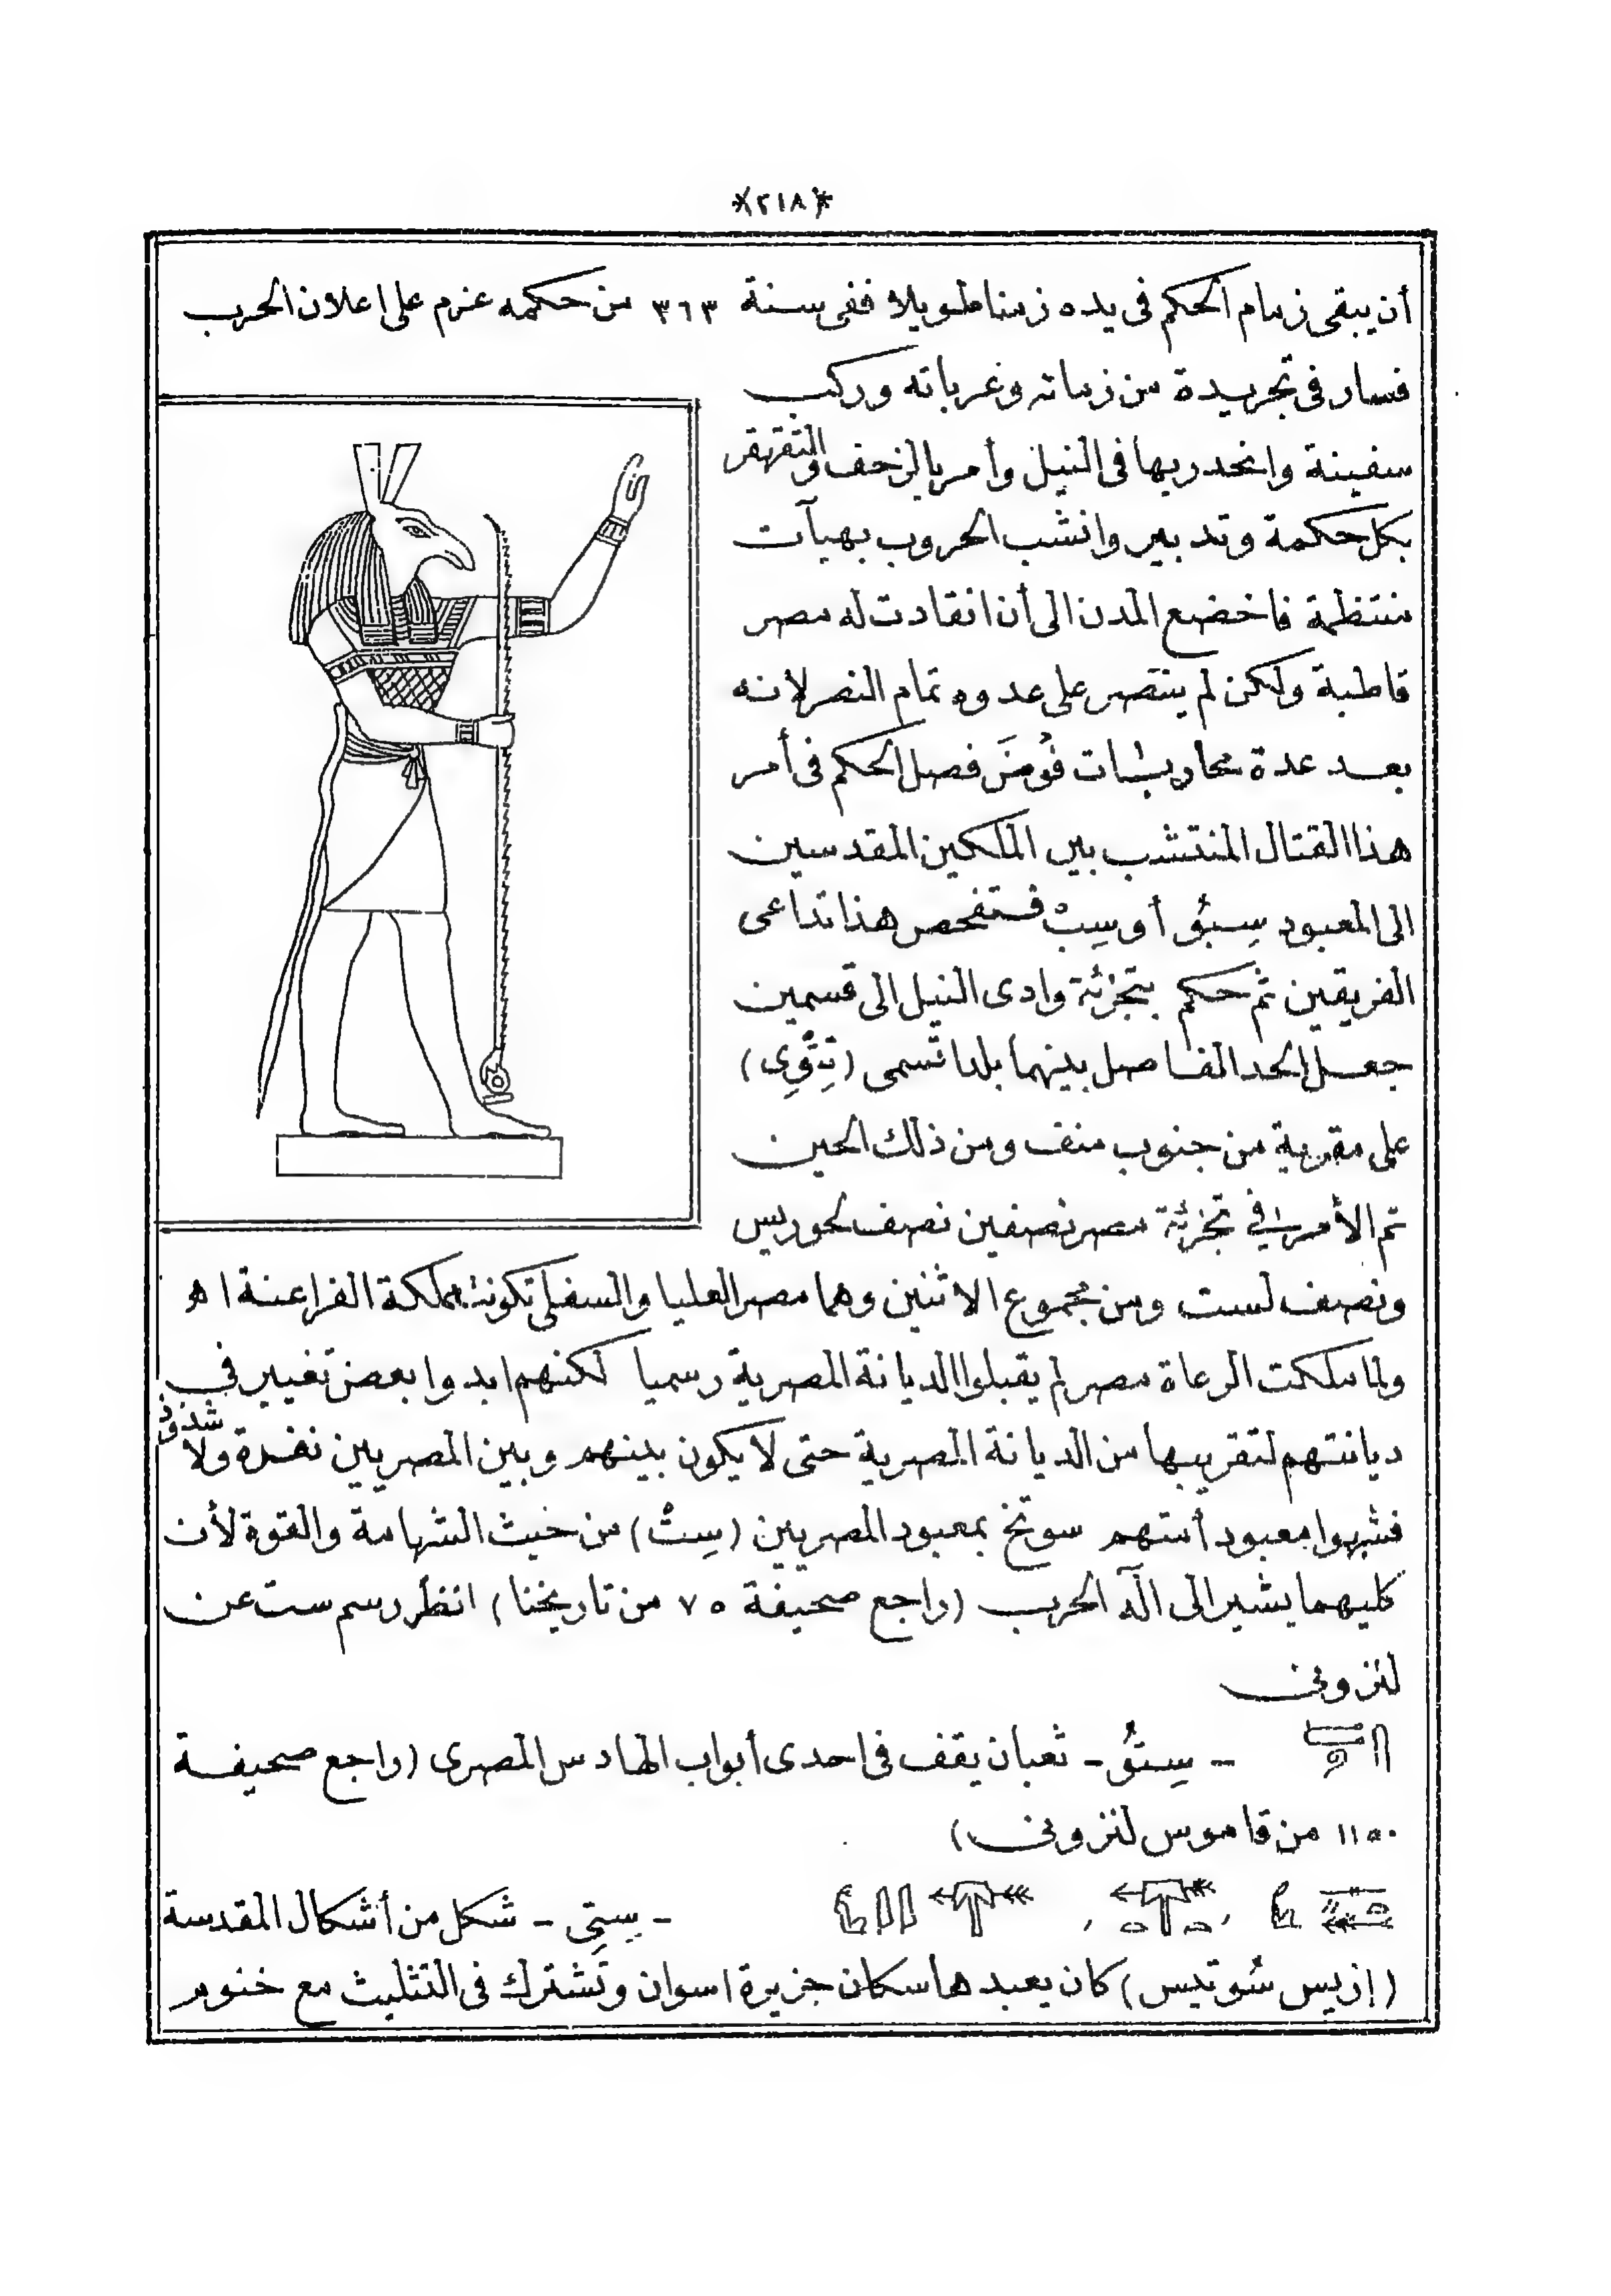 *(٢١٨)*
أن يبقى زمام الحكم فى يده زمنا طويلا ففى سنة ٣٦٣ من حكمه عزم على اعلان الحرب
فسار فى تجريدة من زماته وعرباته وركب
سفينة وانحدر بها فى النيل وأمر بالزحف والتقهقر
بكل حكمة وتدبير وانشب الحروب بهيآت
منتظمة فاخضع المدن الى أن انقادت له مصر
قاطبة ولكن لم ينتصر على عدوه تمام النصر لانه
بعد عدة محاربات فُوِّضَ فصل الحكم فى أمر
هذا القتال المنتشب بين الملكين المقدسين
الى المعبود سِبُو أو سِبْ فتفحص هذا تداعى
الفريقين ثم حكم بتجزئة وادى النيل الى قسمين
جعل الحد الفاصل بينهما بلدا تسمى
على مقربة من جنوب منف ومن ذلك الحين
تم الأمر فى تجزئة مصر نصفين نصف لحوريس
ونصف لست ومن مجموع الاثنين وهما مصر العليا والسفلى تكونت مملكة الفراعنة اه
ولما ملكت الرعاة مصر لم يقبلوا الديانة المصرية رسميا لكنهم ابدوا بعض تغيير فى
ديانتهم لتقريبها من الديانة المصرية حتى لا يكون بينهم وبين المصريين نفرة ولا شذوذ
فشبهوا معبود أمتهم سوتخ بمعبود المصريين (سِتْ) من حيث الشهامة والقوة لأن
كليهما يشير الى آله الحرب (راجع صحيفة ٧٥ من تاريخنا) انظر رسم ست عن
لنزونى
- سِتُو - ثعبان يقف فى احدى أبواب الهادس المصرى (راجع صحيفة
١١٥٠ من قاموس لنزونى)
- سِتِى - شكل من أشكال المقدسة
(إزيس سُوتيس) كان يعبدها سكان جزيرة اسوان وتشترك فى التثليث مع خنوم